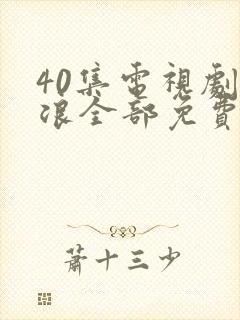 40集電視劇
浪全部免費
蕭十三少